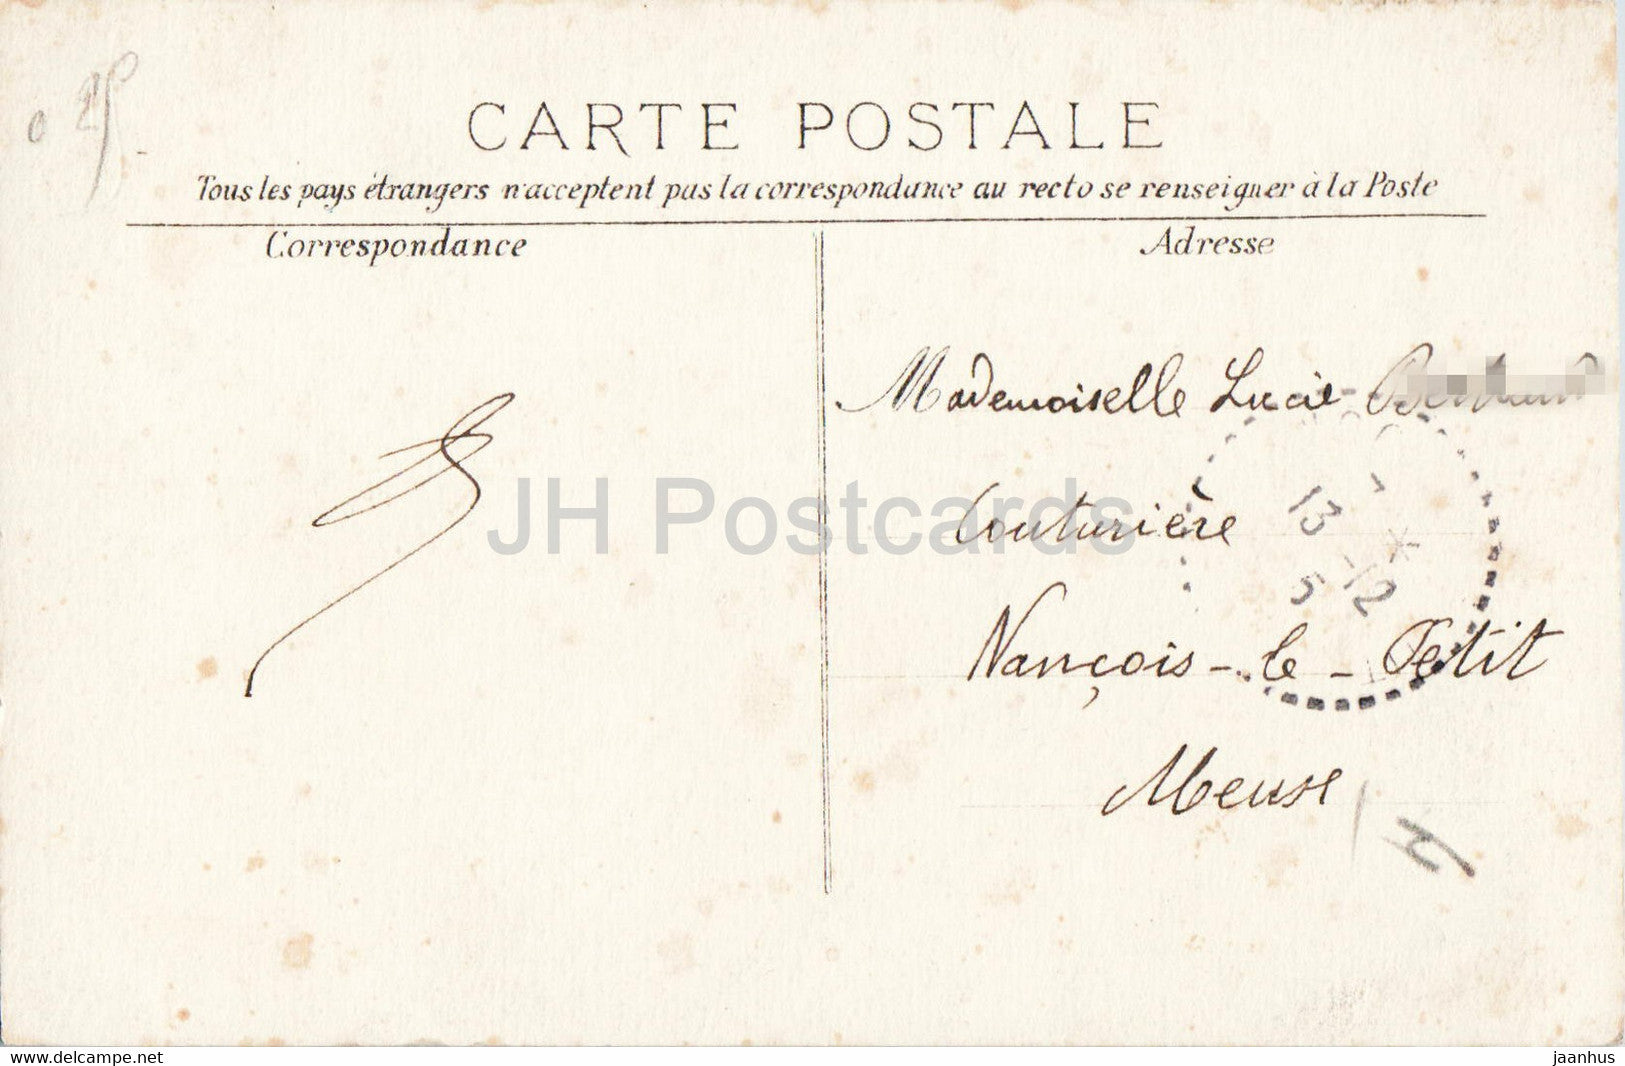 0 25
CARTE POSTALE
Tous les pays étrangers n'acceptent pas la correspondance au recto se renseigner à la Poste
Correspondance
Adresse
Mademoiselle Lucie
Couturière
Nançois-le-Petit
Meuse
13
5 -12
JH Postcards
www.delcampe.net
jaanhus